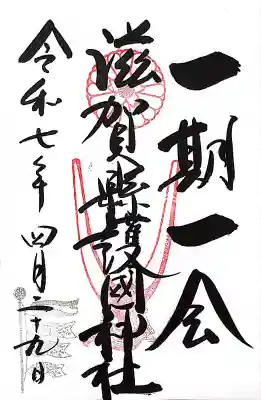 一期一会
滋賀縣護國神社
令和七年 四月二十九日